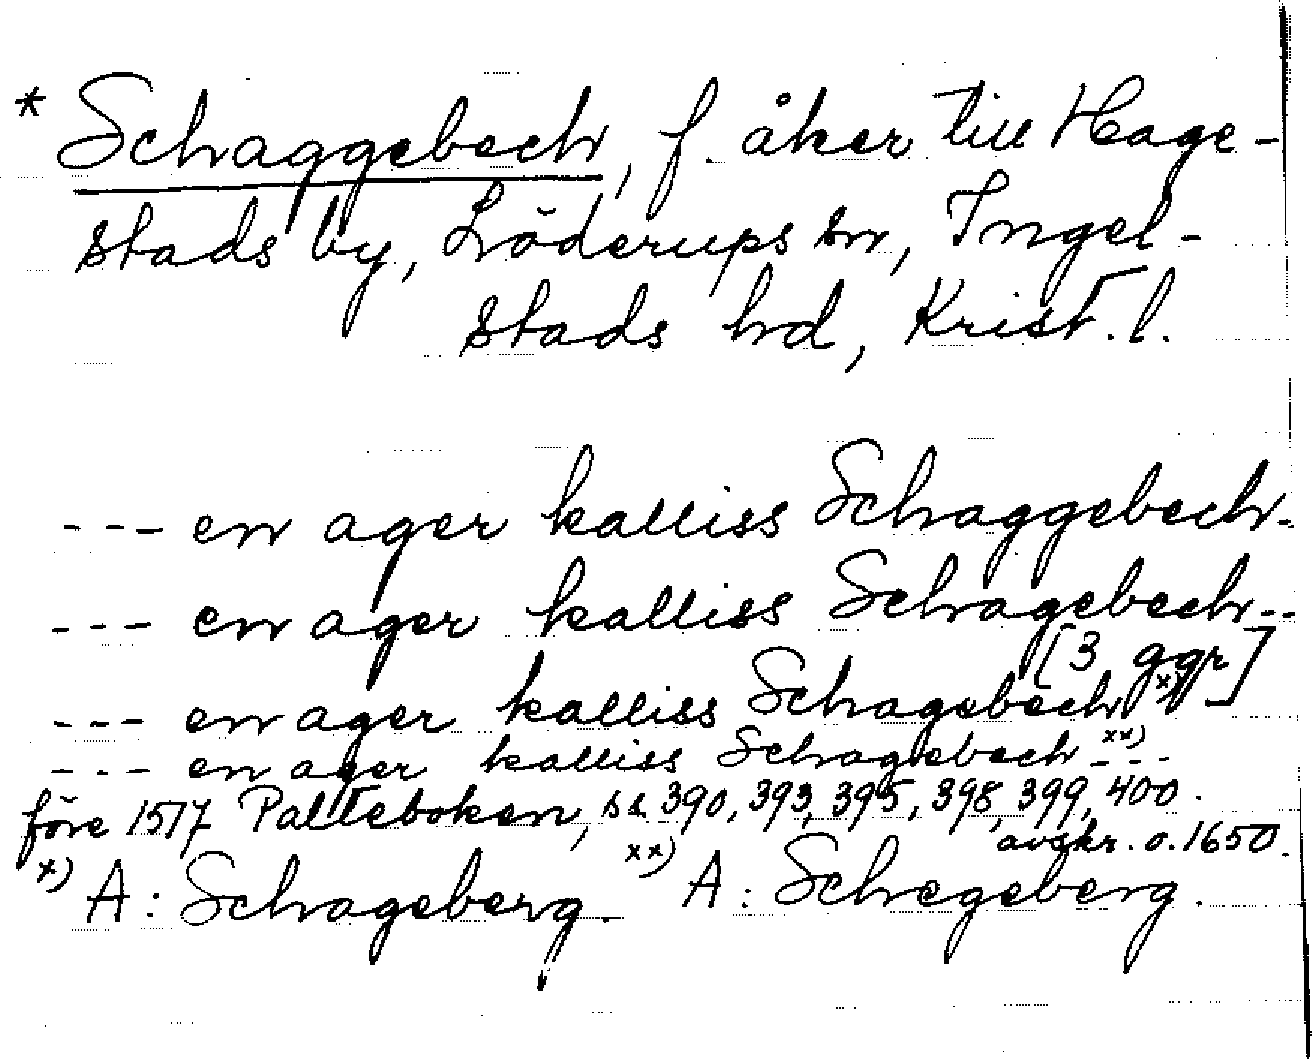 * Schaggebech, f. åker till Hage-
stads by, Löderups sn, Ingel-
stads hd, Krist. l.
--- en ager kalliss Schaggebech-
--- en ager kalliss Schagebech--
[3 ggr]
--- en ager kalliss Schagebech x)
--- en ager kalliss Schagebech xx) ---
före 1517 Palteboken, ss 390, 393, 395, 398, 399, 400.
avskr. o. 1650.
x) A: Schageberg. xx) A: Schegeberg.